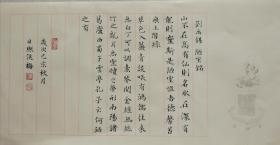 劉禹錫 陋室銘
山不在高有仙則名水不在深有
龍則靈斯是陋室惟吾德馨苔
痕上階綠
草色入簾青談笑有鴻儒往來
無白丁可以調素琴閱金經無絲
竹之亂耳無案牘之勞形南陽諸
葛廬西蜀子雲亭孔子云何陋
之有
歲次己亥秋月
日照